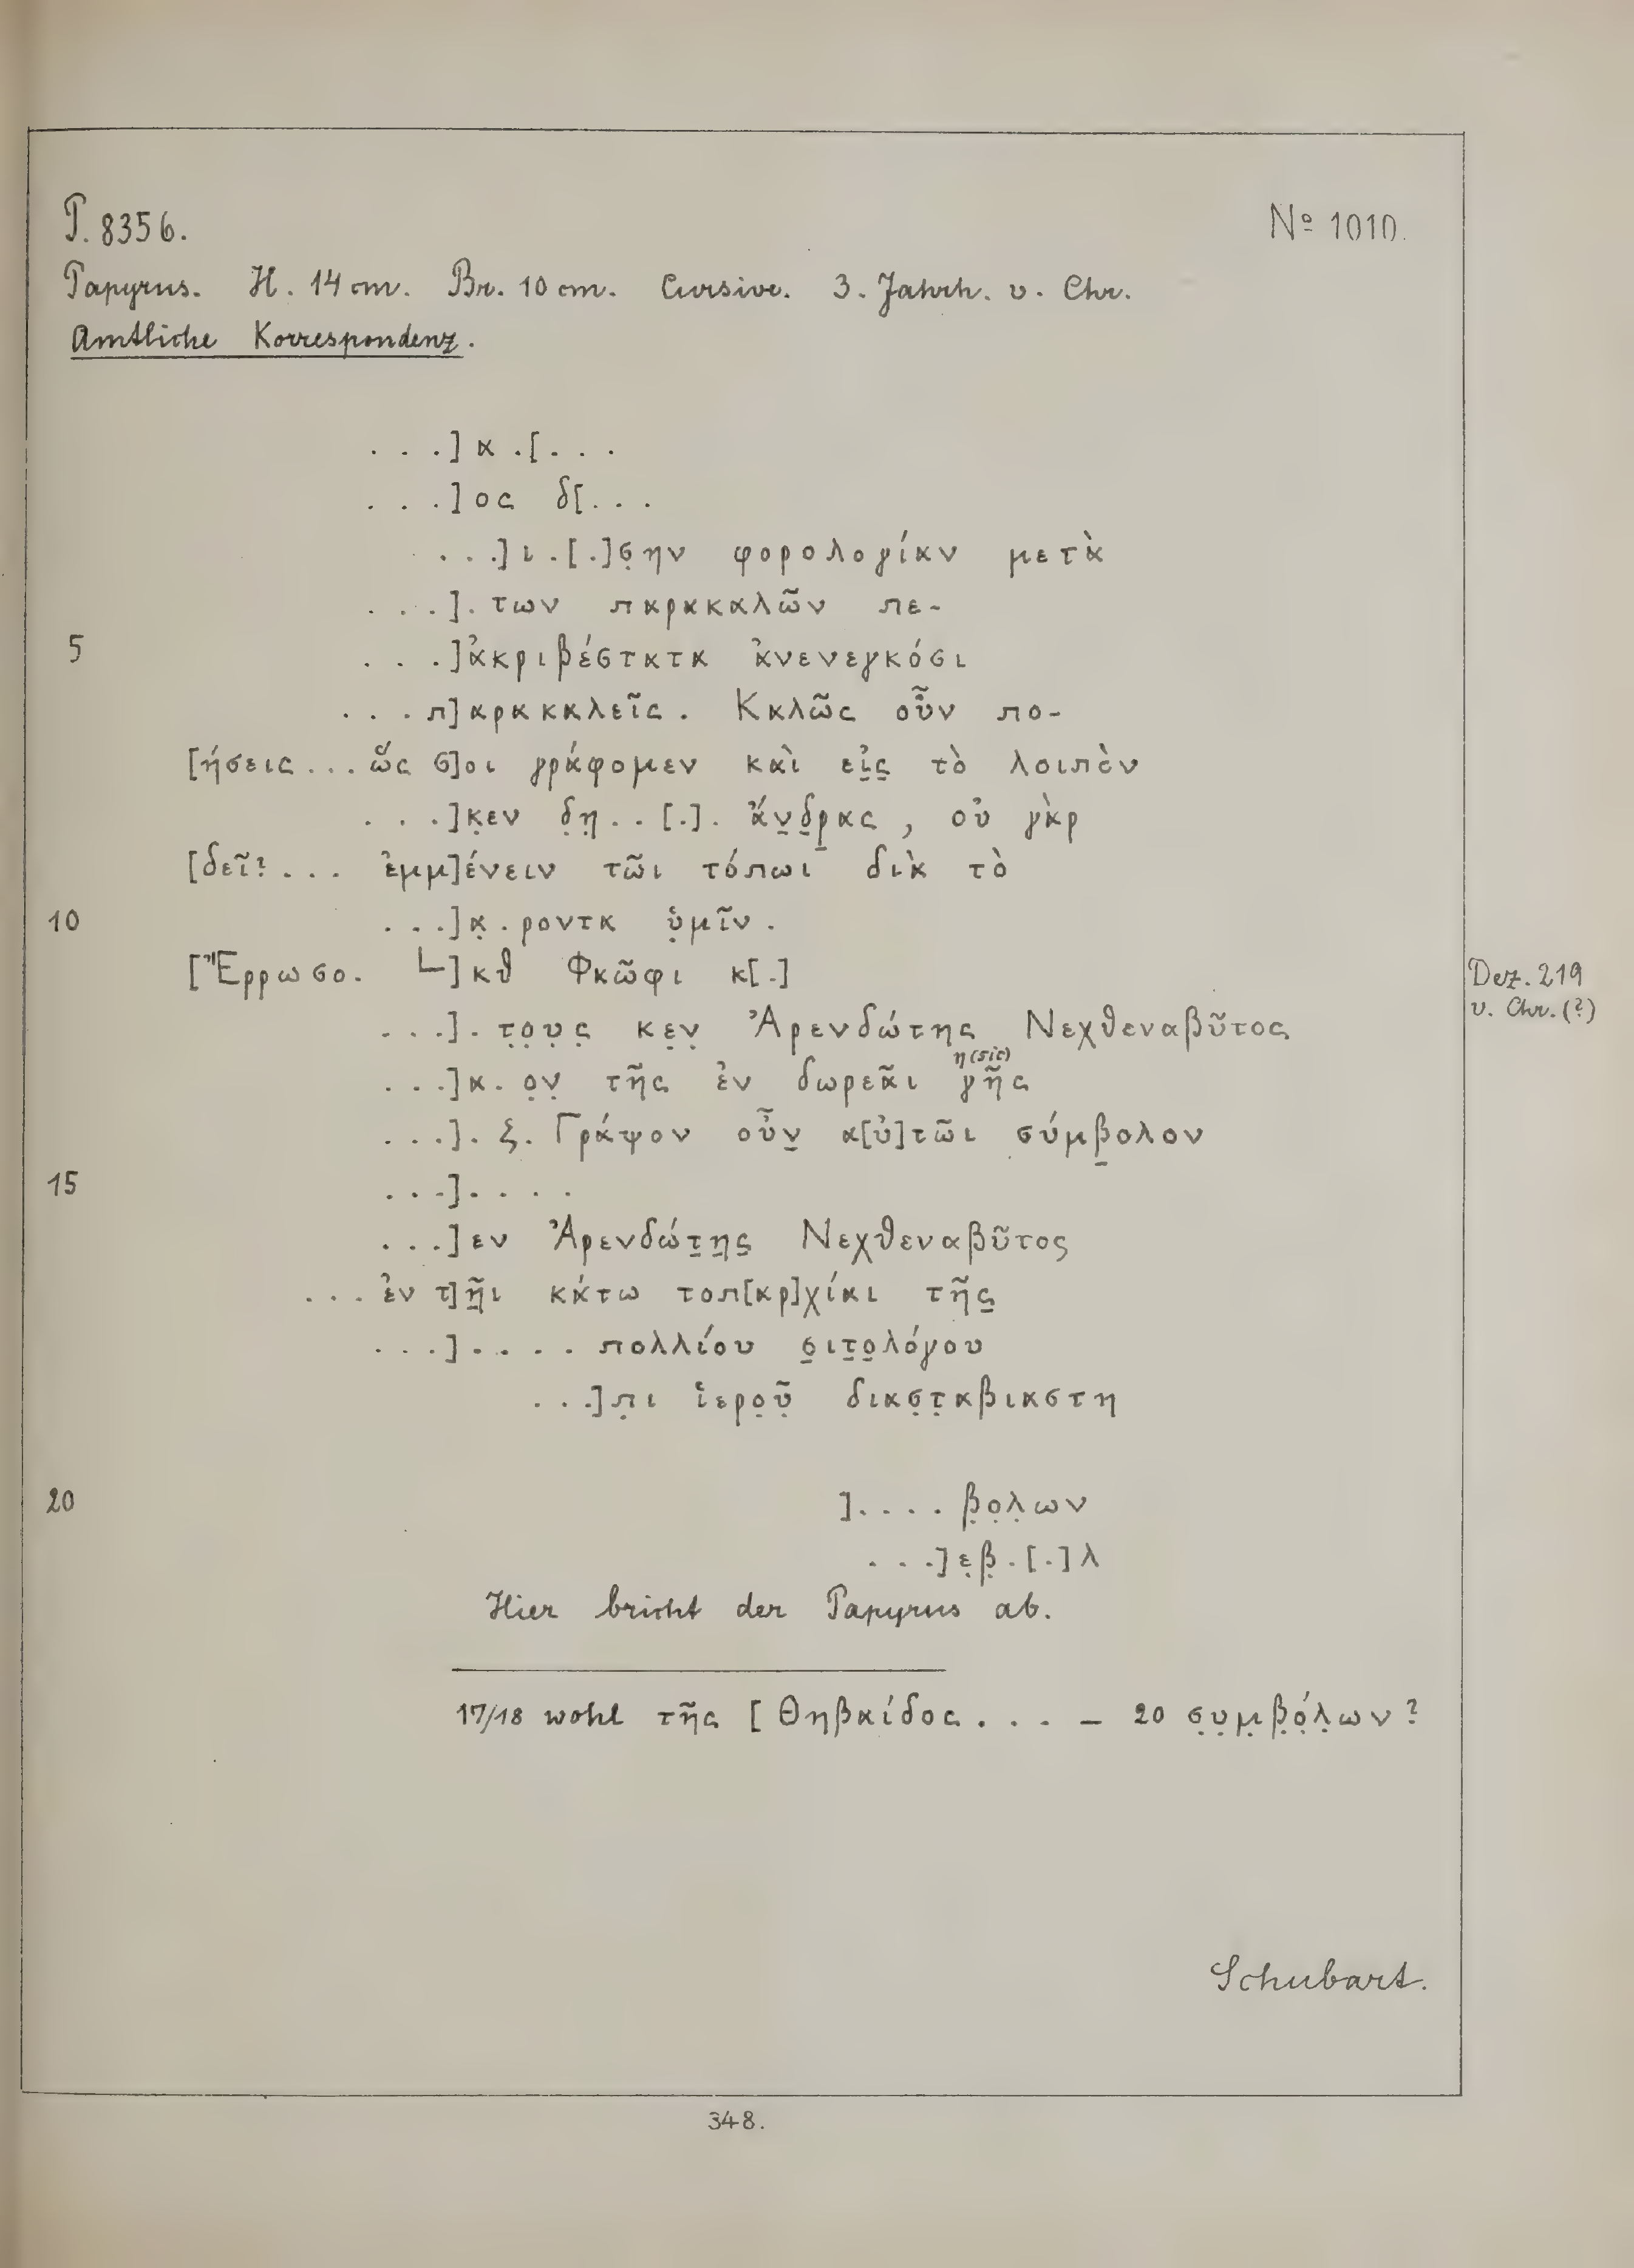 P. 8356. No 1010.
Papyrus. H. 14 cm. Br. 10 cm. Cursive. 3. Jahrh. v. Chr.
Amtliche Korrespondenz.
. . .] α .[. . .
. . .]ος δ[. . .
. . .]ι.[.]σ̣ην φορολογίαν μετὰ
. . .]. των παρακαλῶν πε-
5 . . .]ἀκριβέστατα ἀνενεγκόσι
. . . π]αρακαλεῖς. Καλῶς οὖν πο-
[ήσεις... ὥς σ]οι γράφομεν καὶ εἰ̣ς̣ τὸ λοιπὸν
. . .]κ̣εν δ̣η̣..[.]. ἄν̣δ̣ρ̣ας, οὐ γὰρ
[δεῖ?... ἐμμ]ένειν τῶι τόπωι διὰ τὸ
10 . . .]α̣.ροντα ὑ̣μῖν.
[Ἔρρωσο. └]κθ Φαῶφι κ[.] Dez. 219
v. Chr. (?)
. . .]. τ̣ο̣υ̣ς̣ κε̣ν̣ Ἀρενδώτης Νεχθεναβῦτος
η (sic)
. . .]α. ο̣ν̣ τῆς ἐν δωρεᾶι γῆς
. . .]. ξ. Γράψον οὖν̣ α[ὐ]τῶι σύμβ̣ολον
15 . . .]. . . .
. . .]εν Ἀρενδώτ̣η̣ς̣ Νεχθεναβῦτος
. . . ἐν τ]ῆ̣ι κάτω τοπ[αρ]χίαι τῆς̣
. . .]. . . . πολλίου σ̣ιτ̣ο̣λόγου
. . .]π̣ι ἱερο̣ῦ̣ διασ̣τ̣αβιαστη
20 ]. . . . β̣ο̣λ̣ων
. . .]ε̣β̣.[.]λ
Hier bricht der Papyrus ab.
17/18 wohl τῆς [Θηβαίδος. . . – 20 σ̣υ̣μ̣β̣ό̣λ̣ων?
Schubart.
348.